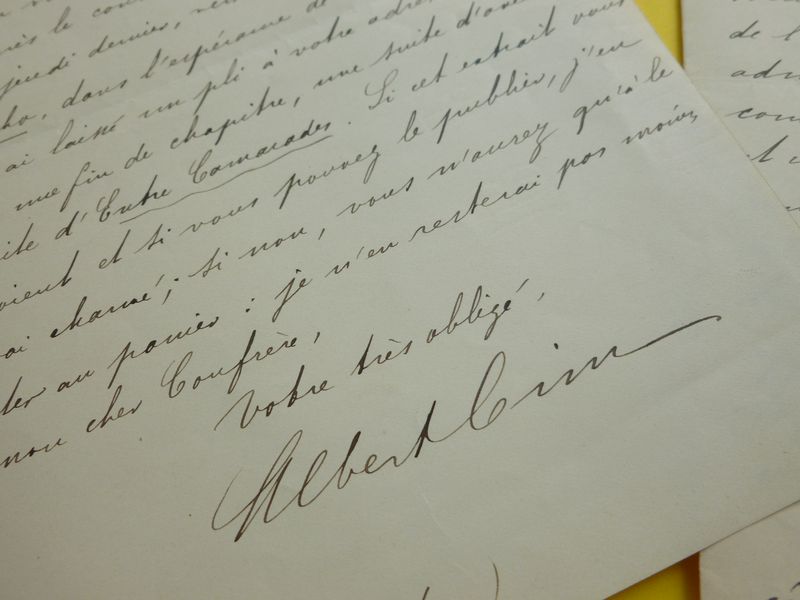 près le
jeudi dernier,
ho, dans l'espérance de
ai laissé un pli à votre adres
une fin de chapitre, une suite d'av
ite d'Entre Camarades. Si cet extrait vous
vient et si vous pouvez le publier, j'en
ai charmé; si non, vous n'aurez qu'à le
ter au panier: je n'en resterai pas moins
mon cher Confrère,
Votre très obligé,
Albert Cim
de l'
adr
com